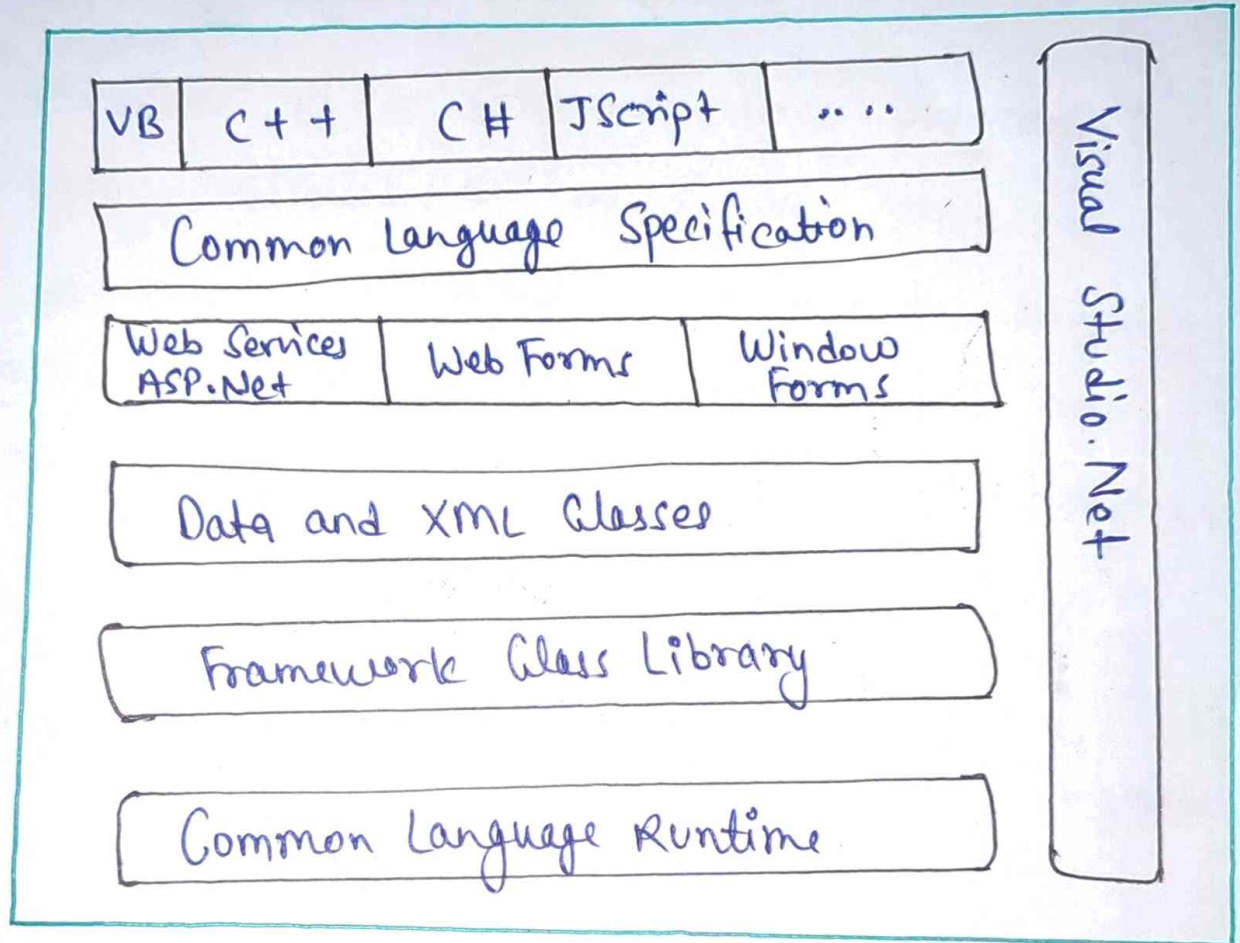 VB C++ C# JScript ....
Common Language Specification
Web Services
ASP.Net
Web Forms
Window
Forms
Data and XML Classes
Framework Class Library
Common Language Runtime
Visual Studio.Net